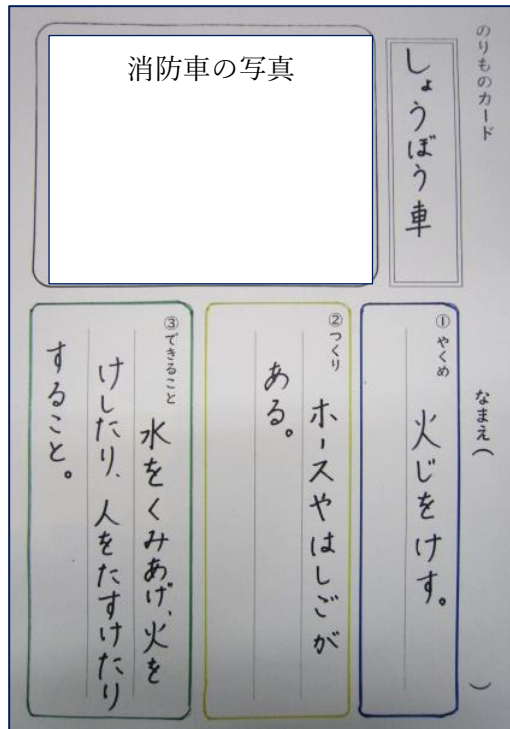 のりものカード
なまえ（　　　）
しょうぼう車
消防車の写真
①やくめ
火じをけす。
②つくり
ホースやはしごが
ある。
③できること
水をくみあげ、火を
けしたり、人をたすけたり
すること。